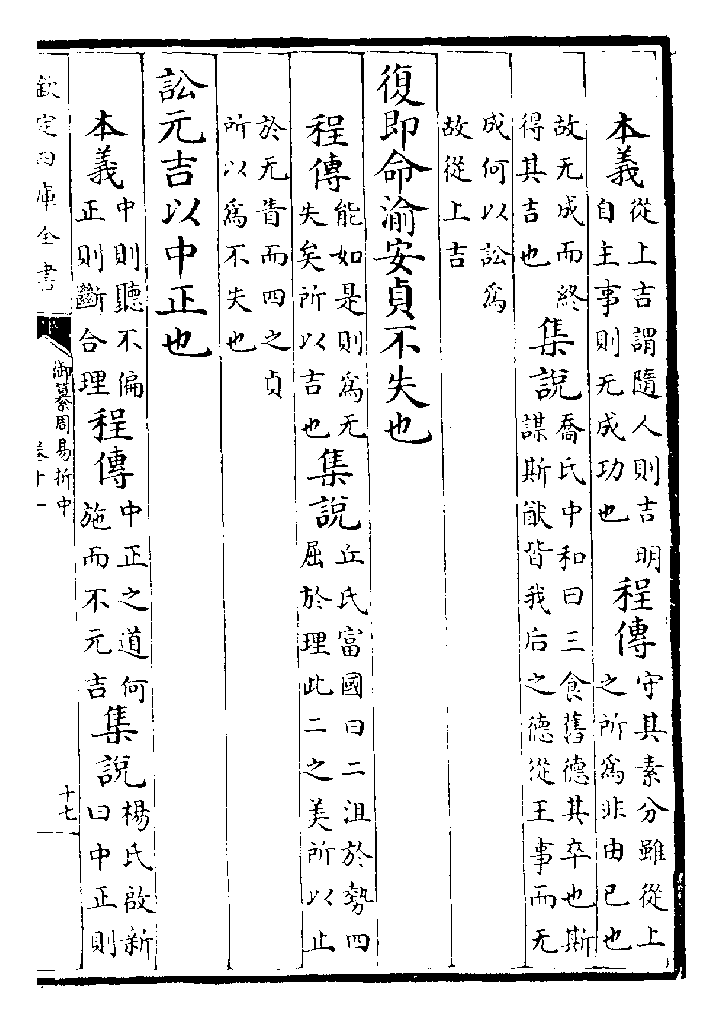 本義從上吉謂隨人則吉明
自主事則无成功也
程傳守其素分雖從上
之所爲非由已也
故无成而終
得其吉也
集說喬氏中和曰三食舊德其卒也斯
謀斯猷皆我后之德從王事而无
成何以訟爲
故從上吉
復即命渝安貞不失也
程傳能如是則爲无
失矣所以吉也
集說丘氏富國曰二沮於勢四
屈於理此二之美所以止
於无眚而四之貞
所以爲不失也
訟元吉以中正也
本義中則聽不偏
正則斷合理
程傳中正之道何
施而不元吉
集說楊氏啟新
曰中正則
欽定四庫全書
御纂周易折中
卷十一
十七